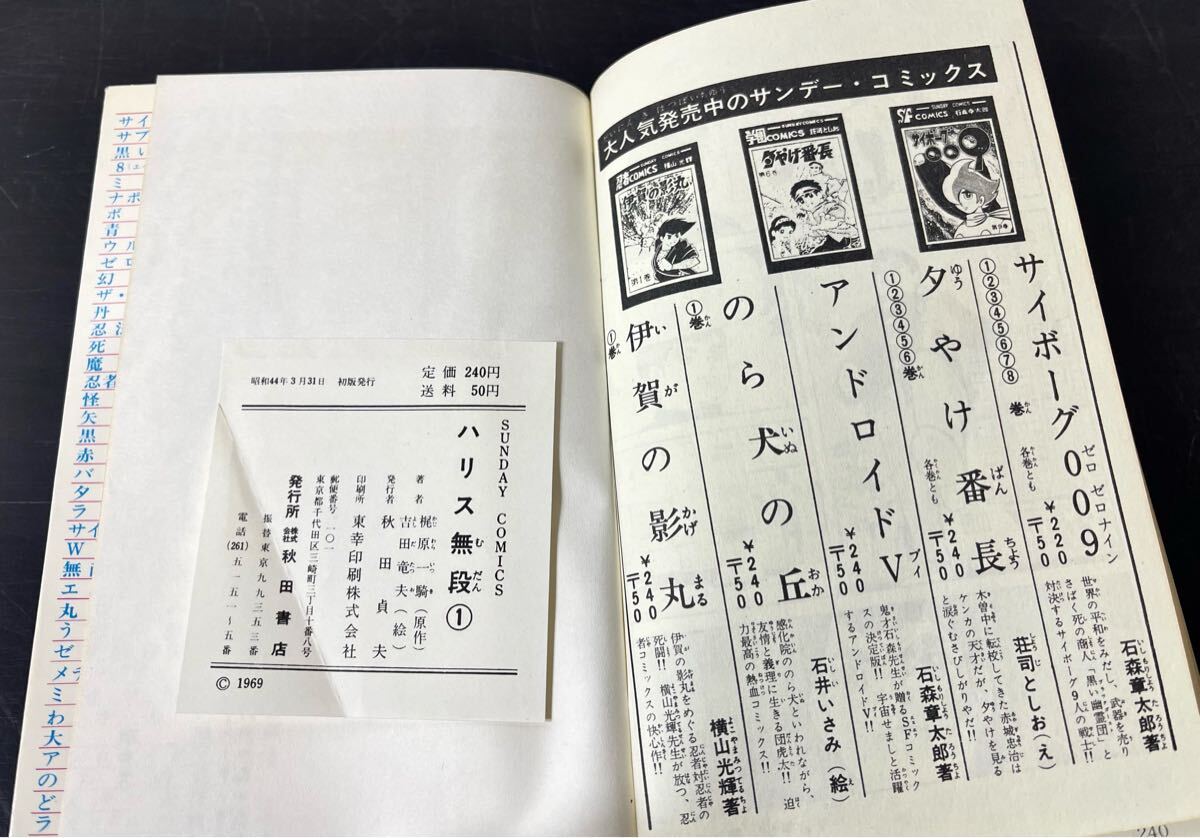 大人気発売中のサンデー・コミックス
SUNDAY COMICS
SF COMICS 石森章太郎
サイボーグ009
第9巻
SUNDAY COMICS
学園COMICS 荘司としお
夕やけ番長
第6巻
SUNDAY COMICS
忍者COMICS 横山光輝
伊賀の影丸
第1巻
サイボーグ009
ゼロゼロナイン
①②③④⑤⑥⑦⑧巻 各巻とも ¥220 〒50
石森章太郎著
世界の平和をみだし、武器を売り
さばく死の商人「黒い幽霊団」と
対決するサイボーグ9人の戦士!!
夕やけ番長
①②③④⑤⑥巻 各巻とも ¥240 〒50
荘司としお(え)
木曽中に転校してきた赤城忠治は
ケンカの天才だが、夕やけを見る
と涙ぐむさびしがりやだ!!
アンドロイドV
¥240 〒50
石森章太郎著
鬼才石森先生が贈るSFコミック
スの決定版!! 宇宙せましと活躍
するアンドロイドV!!
のら犬の丘
①巻 ¥240 〒50
石井いさみ(絵)
感化院ののら犬といわれながら、
友情と義理に生きる団虎太!! 迫
力最高の熱血コミックス!!
伊賀の影丸
①巻 ¥240 〒50
横山光輝著
伊賀の影丸をめぐる忍者対忍者の
死闘!! 横山光輝先生が放つ、忍
者コミックスの快心作!!
240
定価 240円
送料 50円
昭和44年3月31日 初版発行
SUNDAY COMICS
ハリス無段①
著者 梶原一騎(原作)
吉田竜夫(絵)
発行者 秋田貞夫
印刷所 東幸印刷株式会社
郵便番号一〇一
東京都千代田区三崎町三丁目十番八号
発行所 株式会社 秋田書店
振替東京九九三五三番
電話(261)五一五一〜五番
© 1969